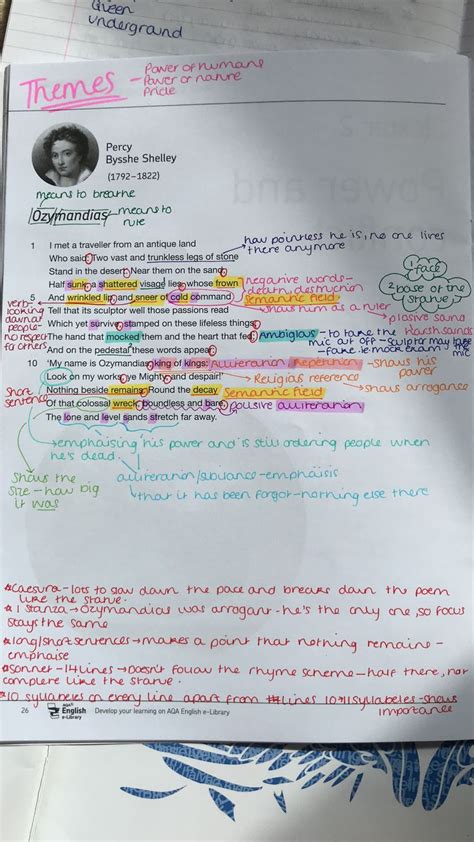 Queen
underground
Themes
- Power of humans
- Power of nature
Pride
Percy
Bysshe Shelley
(1792–1822)
means to breathe
Ozymandias
means to
rule
how pointless he is, no one lives
there anymore
1 I met a traveller from an antique land
Who said: Two vast and trunkless legs of stone
Stand in the desert. Near them on the sand,
Half sunk, a shattered visage lies, whose frown
5 And wrinkled lip, and sneer of cold command,
Tell that its sculptor well those passions read
Which yet survive, stamped on these lifeless things,
The hand that mocked them and the heart that fed;
And on the pedestal these words appear:
10 'My name is Ozymandias, king of kings:
Look on my works, ye Mighty, and despair!'
Nothing beside remains. Round the decay
Of that colossal wreck, boundless and bare,
The lone and level sands stretch far away.
negative words-
death, destruction
Semantic field
shows him as a ruler
1 face
2 base of the
statue
plosive sound
Harsh sounds
verb-
looking
down at
people-
no respect
for others
Ambigious - to take the
mic out off - sculptor may take
the
mic
Alliteration Repetition - shows his
power
Religious reference
shows arrogance
Semantic field
short
sentence
plosive alliteration
emphaising his power and is still ordering people when
he's dead.
shows the
size - how big
it was
alliteration/sibilance - emphaisis
that it has been forgot - nothing else there
*Caesura - lots to slow down the pace and breaks down the poem
like the statue.
*1 stanza → Ozymandias was arrogant - he's the only one, so focus
stays the same
*long/short sentences → makes a point that nothing remains -
emphaise
*Sonnet - 14 lines → Doesn't follow the rhyme scheme - half there, not
complete like the statue.
*10 syllables on every line apart from lines 10 → 11 syllabeles - shows
importance
26
AQA
English
e-Library
Develop your learning on AQA English e-Library